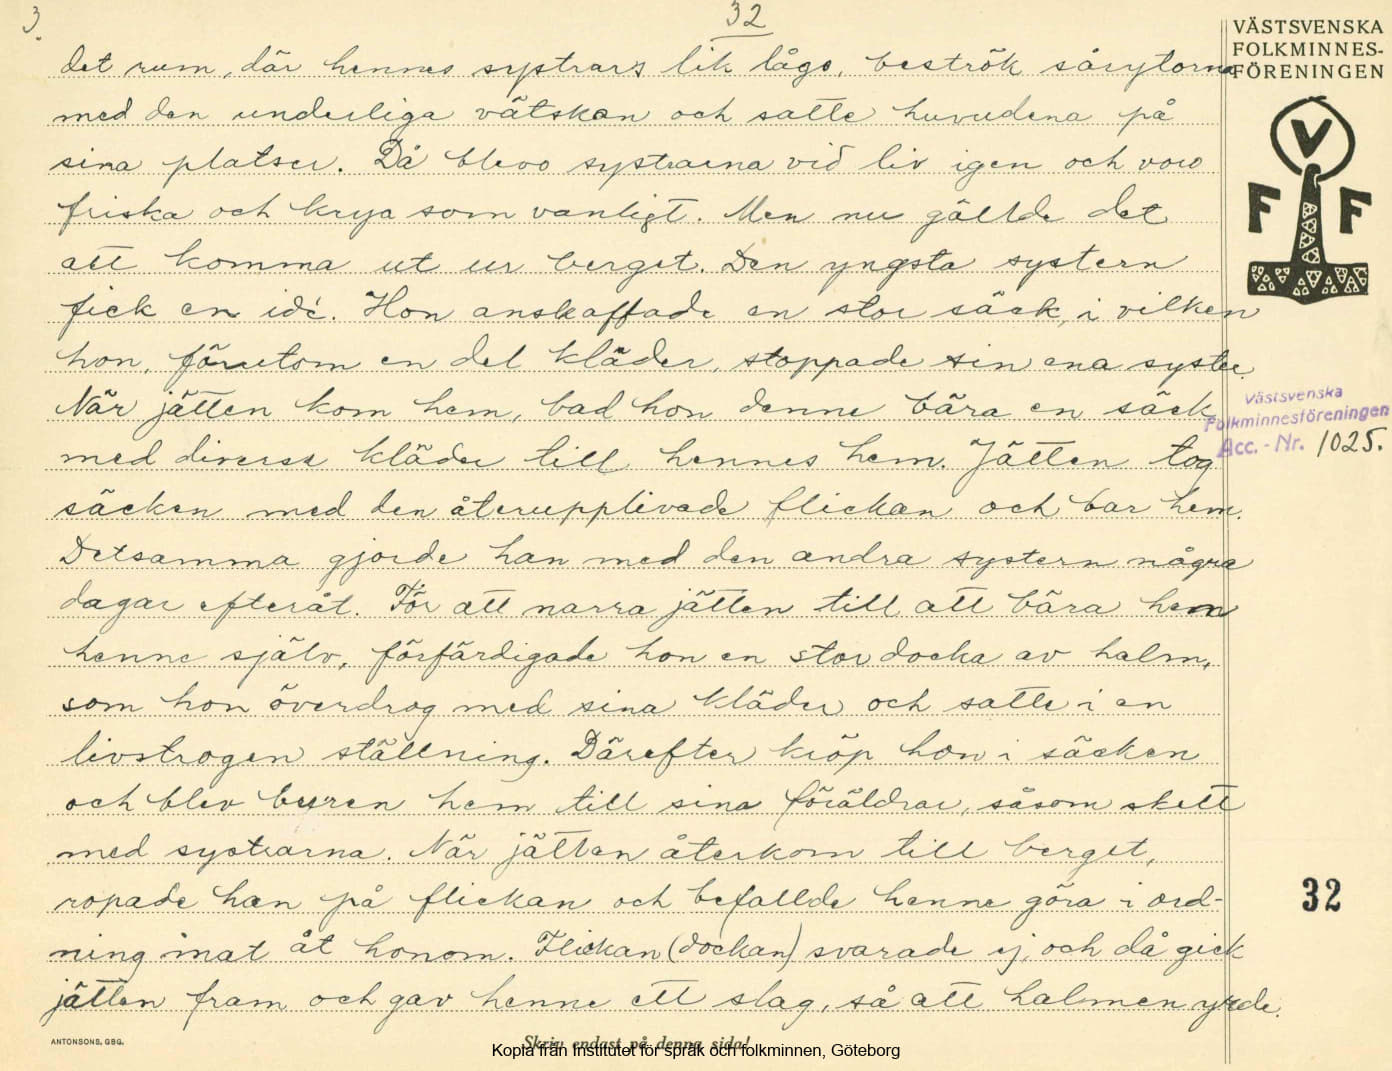 3.
32
VÄSTSVENSKA
FOLKMINNES-
FÖRENINGEN
V
F F
det rum, där hennes systrars lik lågo, beströk sårytorna
med den underliga vätskan och satte huvudena på
sina platser. Då blevo systrarna vid liv igen och voro
friska och krya som vanligt. Men nu gällde det
att komma ut ur berget. Den yngsta systern
fick en idé. Hon anskaffade en stor säck, i vilken
hon, förutom en del kläder, stoppade sin ena syster.
När jätten kom hem, bad hon denne bära en säck
med diverse kläder till hennes hem. Jätten tog
säcken med den återupplivade flickan och bar hem.
Detsamma gjorde han med den andra systern några
dagar efteråt. För att narra jätten till att bära hem
henne själv, förfärdigade hon en stor docka av halm,
som hon överdrog med sina kläder och satte i en
livstrogen ställning. Därefter kröp hon i säcken
och blev buren hem till sina föräldrar, såsom skett
med systrarna. När jätten återkom till berget,
ropade han på flickan och befallde henne göra i ord-
ning mat åt honom. Flickan (dockan) svarade ej, och då gick
jätten fram och gav henne ett slag, så att halmen yrde.
Västsvenska
Folkminnesföreningen
Acc.-Nr. 1025.
32
ANTONSONS, GBG.
Skriv endast på denna sida!
Kopia från Institutet för språk och folkminnen, Göteborg